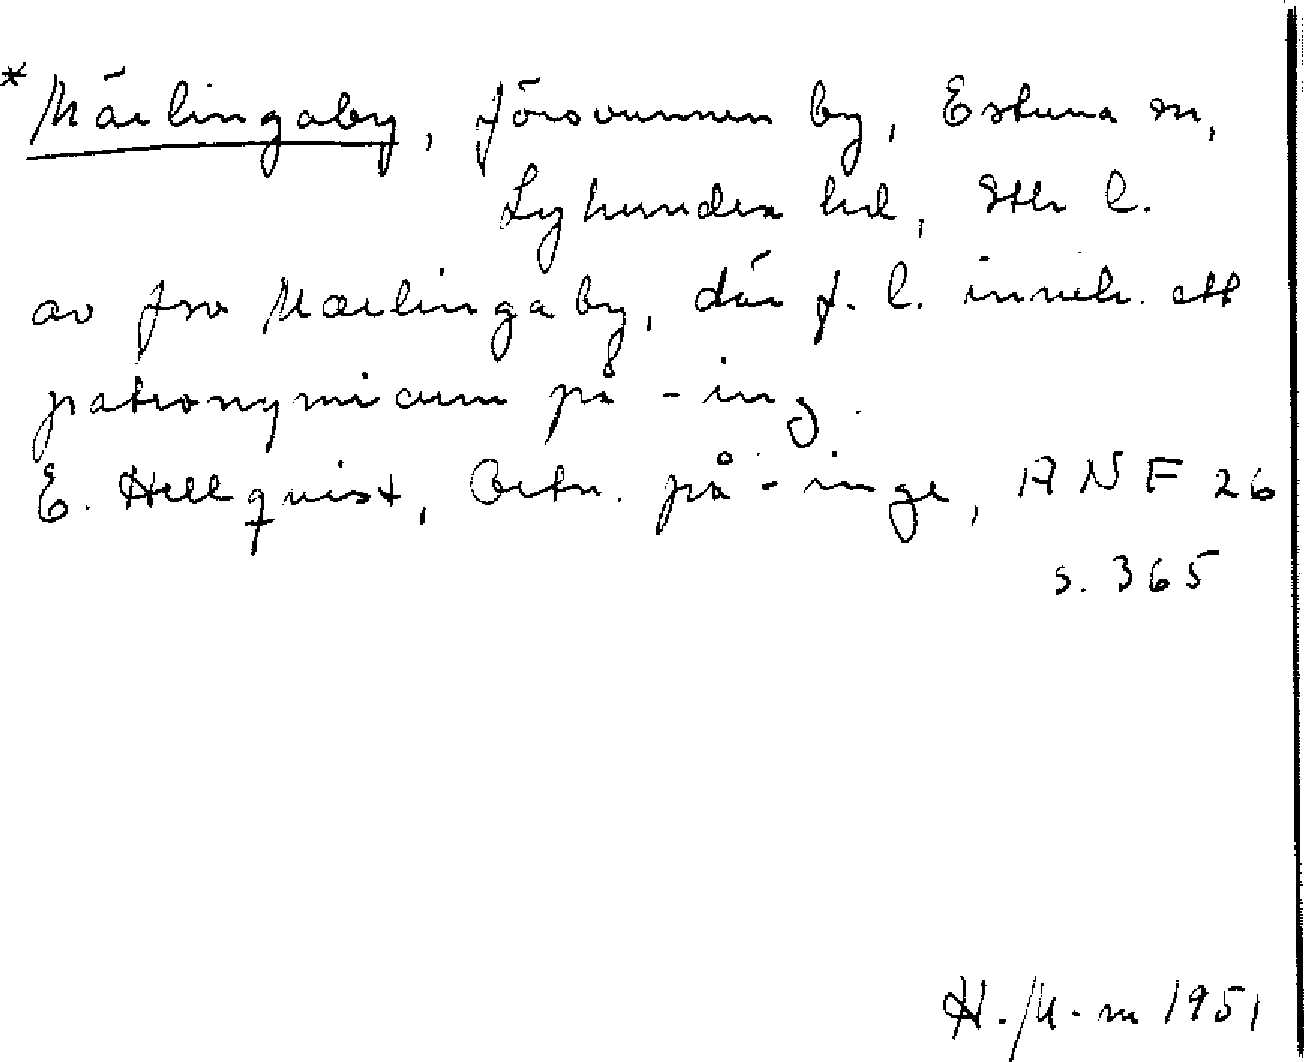 * Märlingaby, försvunnen by, Estuna sn,
Lyhundra hd, Sthlm l.
av fsv Mærlingaby, där f. l. inneh. ett
patronymicum på -ing.
E. Hellquist, Ortn. på -inge, ANF 26
s. 365
H. M-m 1951